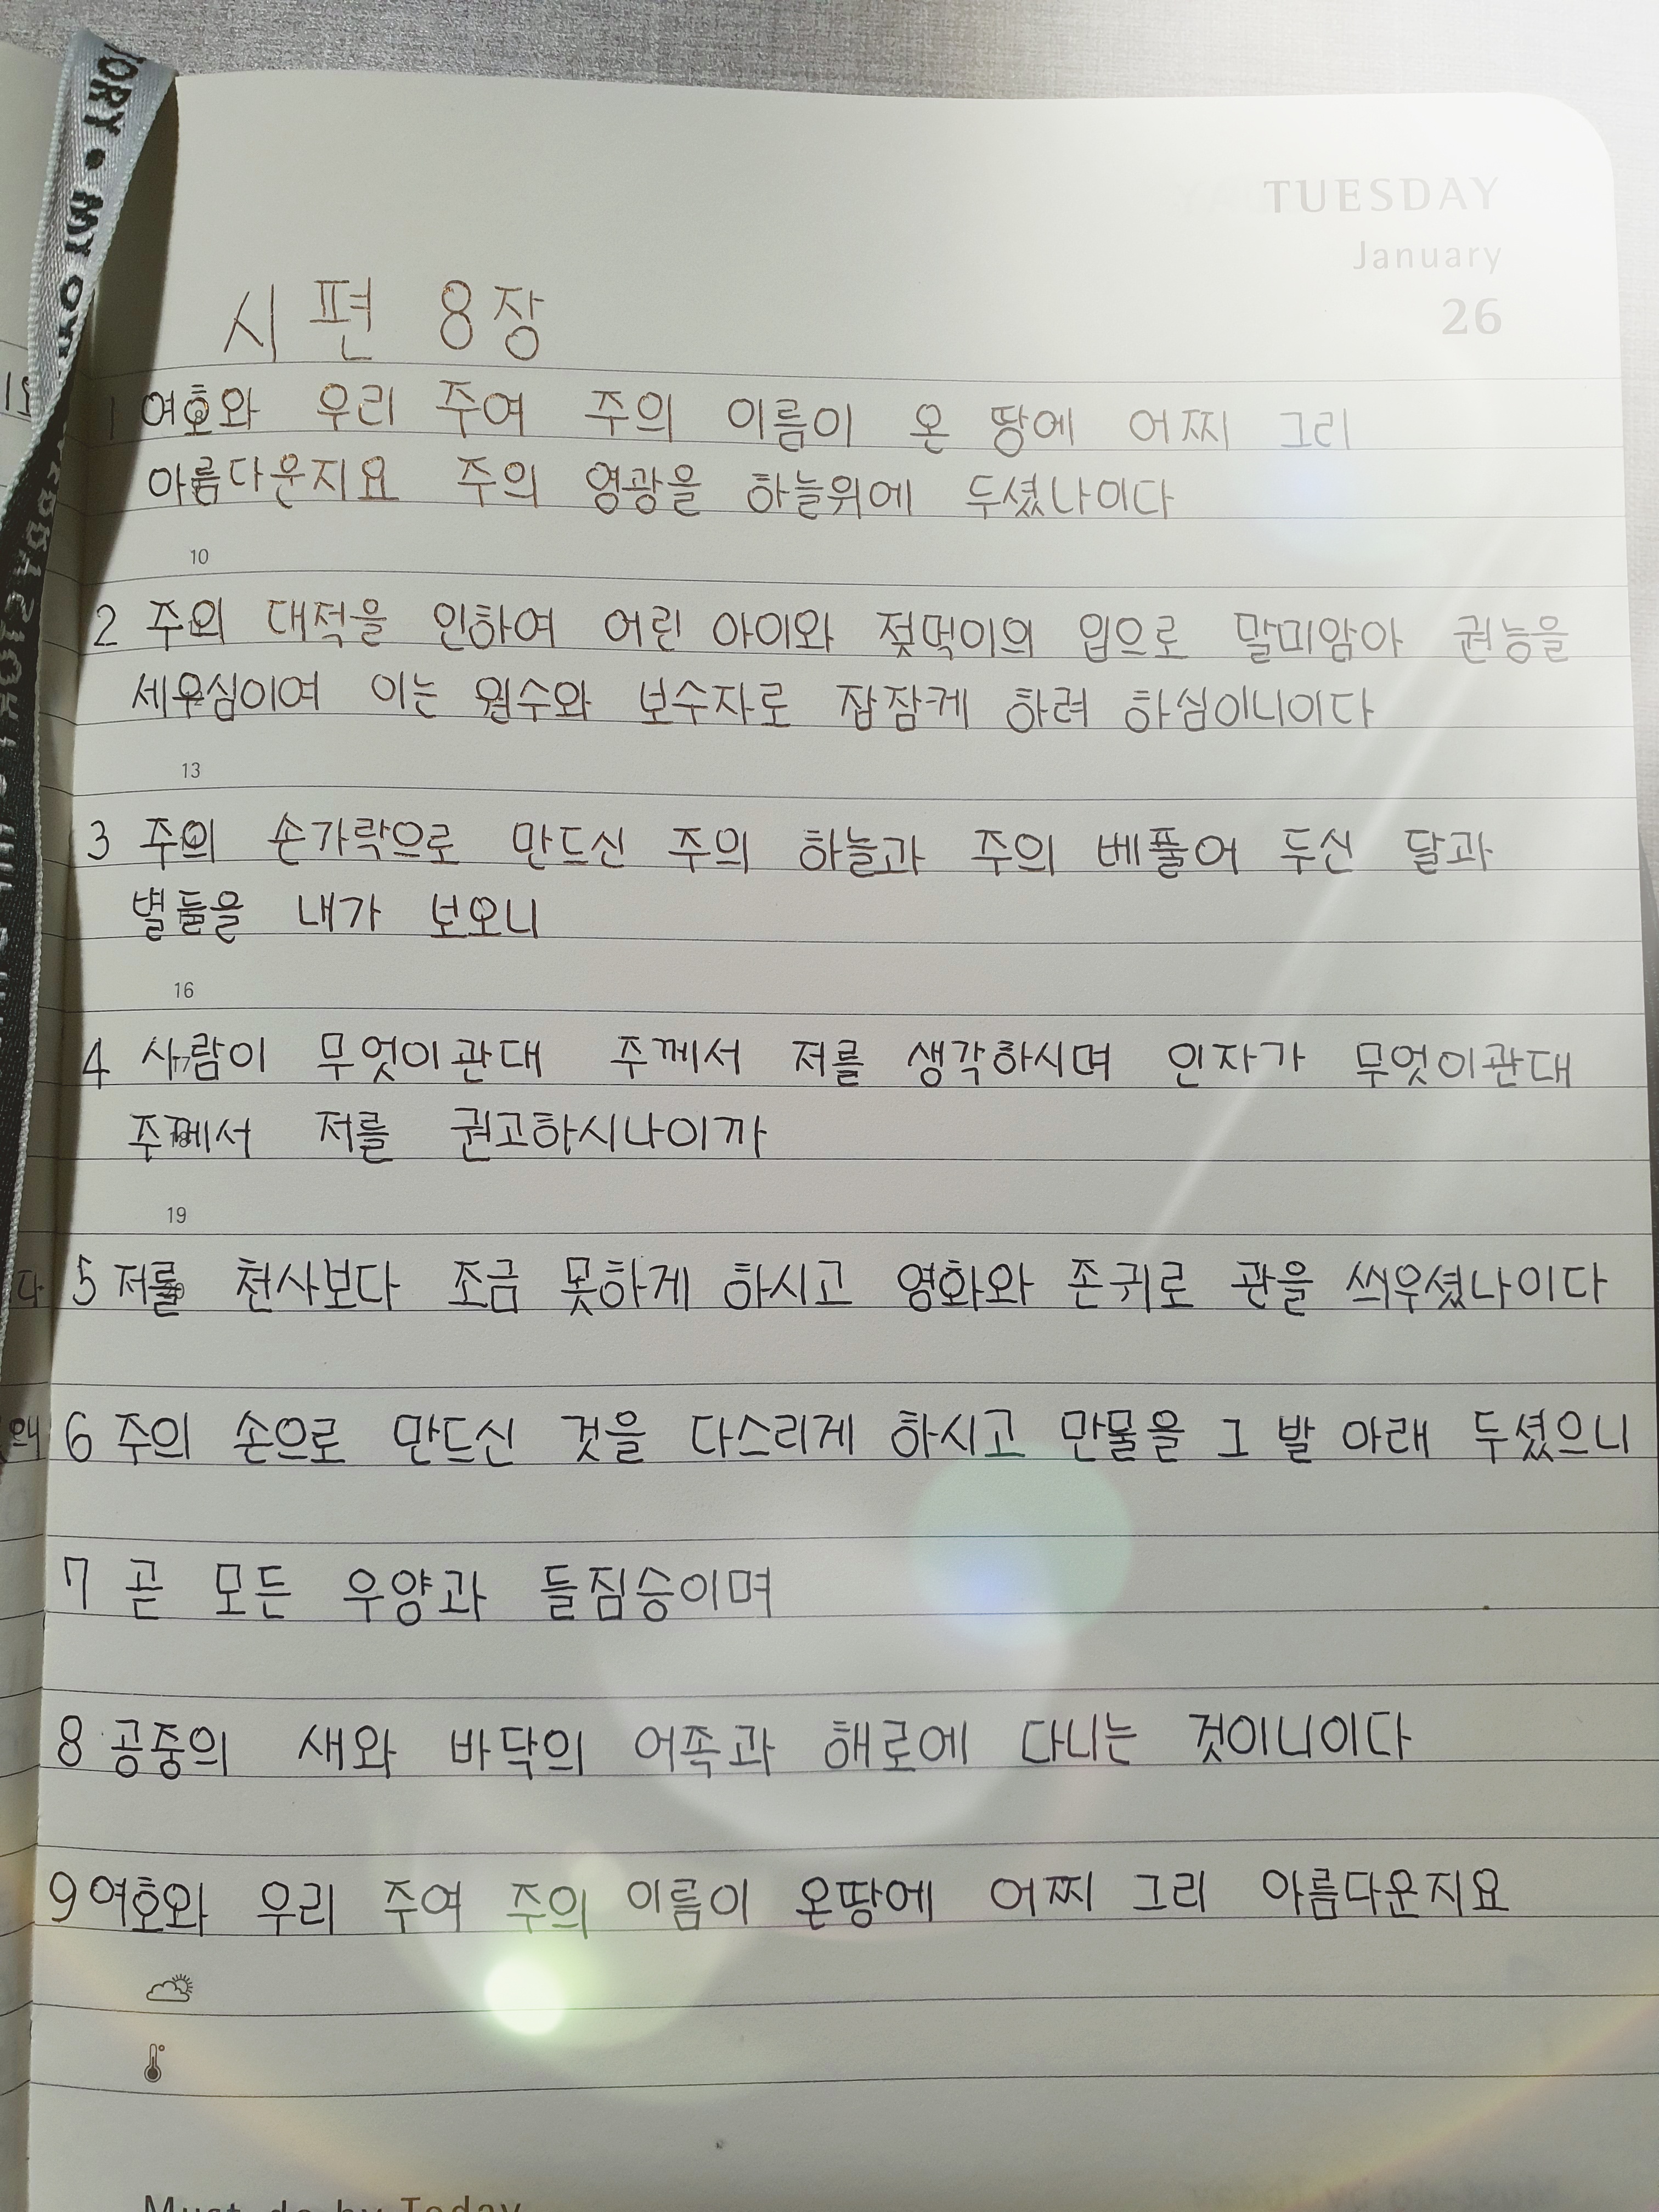 TUESDAY
January
26
시편 8장
1 여호와 우리 주여 주의 이름이 온 땅에 어찌 그리
아름다운지요 주의 영광을 하늘위에 두셨나이다
10
2 주의 대적을 인하여 어린 아이와 젖먹이의 입으로 말미암아 권능을
세우심이여 이는 원수와 보수자로 잡잠케 하려 하심이니이다
13
3 주의 손가락으로 만드신 주의 하늘과 주의 베풀어 두신 달과
별들을 내가 보오니
16
4 사람이 무엇이관대 주께서 저를 생각하시며 인자가 무엇이관대
주께서 저를 권고하시나이까
19
5 저를 천사보다 조금 못하게 하시고 영화와 존귀로 관을 씌우셨나이다
6 주의 손으로 만드신 것을 다스리게 하시고 만물을 그 발 아래 두셨으니
7 곧 모든 우양과 들짐승이며
8 공중의 새와 바닥의 어족과 해로에 다니는 것이니이다
9 여호와 우리 주여 주의 이름이 온땅에 어찌 그리 아름다운지요
Must-do by Today